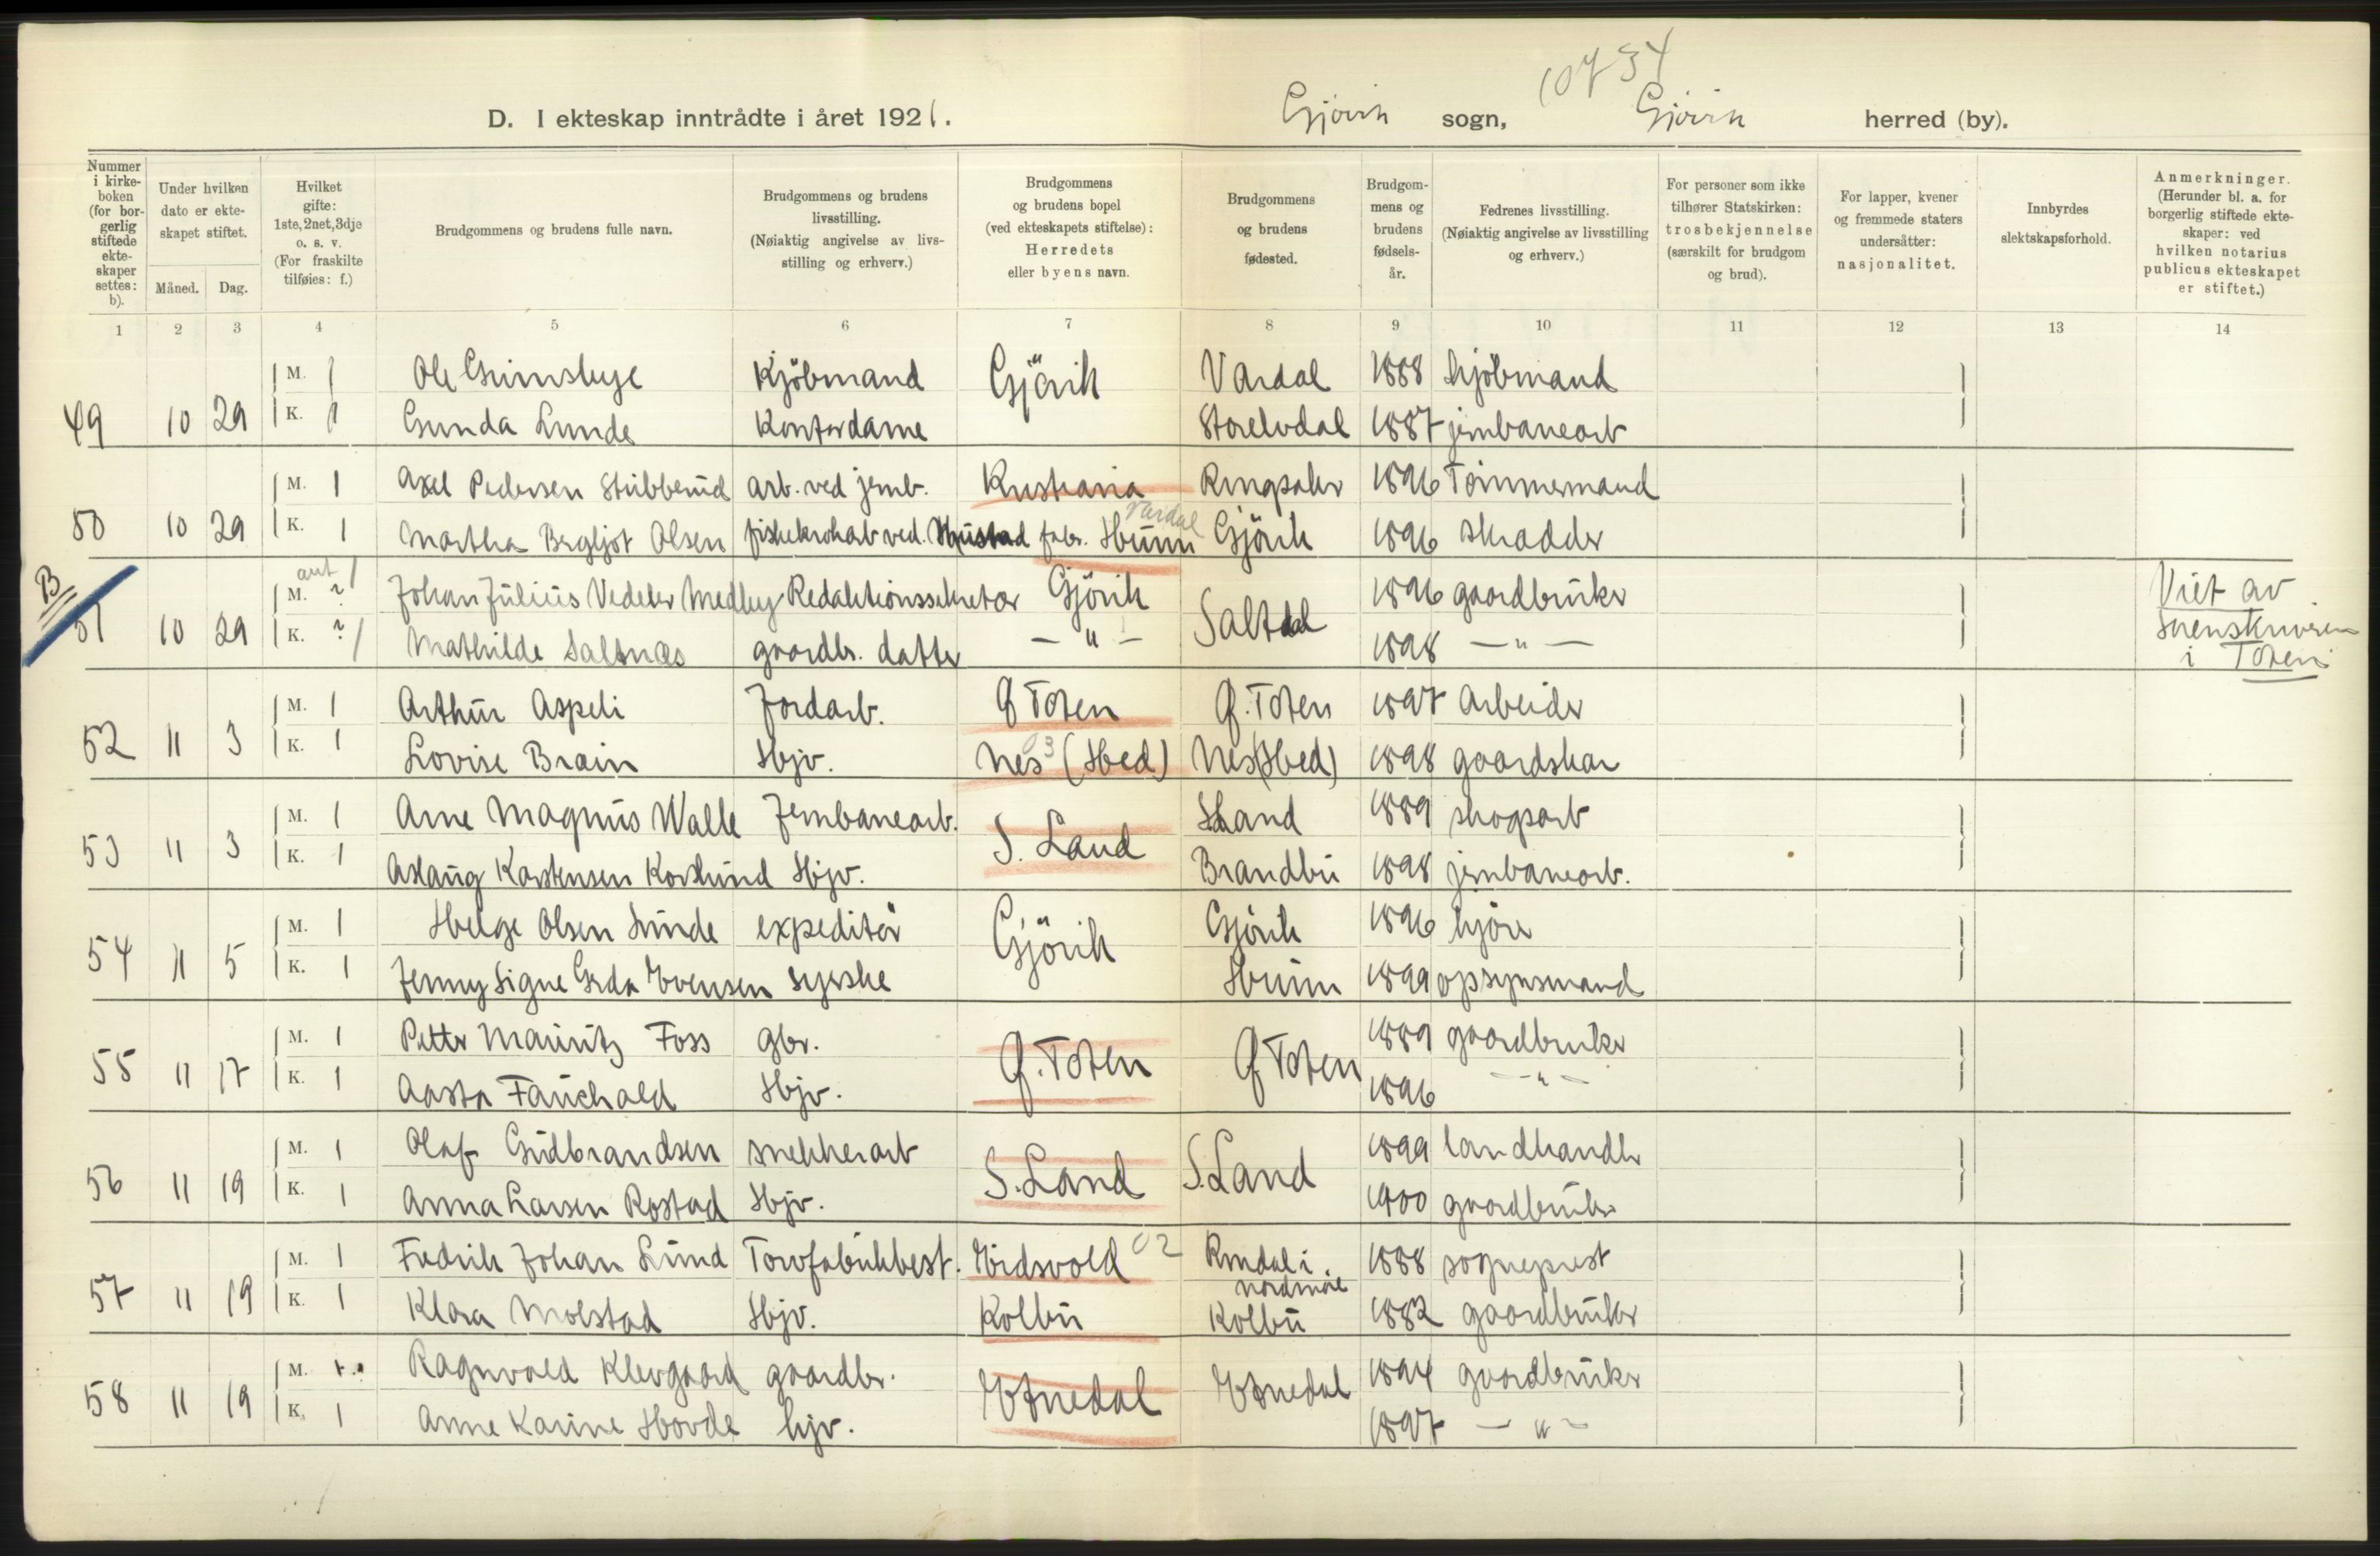 10734
D. I ekteskap inntrådte i året 1921.
Gjövik sogn, Gjövik herred (by).
Nummer i kirke-boken (for bor-gerlig stiftede ekte-skaper settes: b).
Under hvilken dato er ekte-skapet stiftet.
Måned. Dag.
Hvilket gifte: 1ste, 2net, 3dje o. s. v. (For fraskilte tilføies: f.)
Brudgommens og brudens fulle navn.
Brudgommens og brudens livsstilling. (Nøiaktig angivelse av livs-stilling og erhverv.)
Brudgommens og brudens bopel (ved ekteskapets stiftelse): Herredets eller byens navn.
Brudgommens og brudens fødested.
Brudgom-mens og brudens fødsels-år.
Fedrenes livsstilling. (Nøiaktig angivelse av livsstilling og erhverv.)
For personer som ikke tilhører Statskirken: trosbekjennelse (særskilt for brudgom og brud).
For lapper, kvener og fremmede staters undersåtter: nasjonalitet.
Innbyrdes slektskapsforhold.
Anmerkninger. (Herunder bl. a. for borgerlig stiftede ekte-skaper: ved hvilken notarius publicus ekteskapet er stiftet.)
1 2 3 4 5 6 7 8 9 10 11 12 13 14
M. 1 Ole Kjöbmand Gjövik Vardal 1888 kjöbmand
49 10 29 K. 1 Gunda Lunde Kontordame Storelvdal 1887 jernbanearb
M. 1 Axel Pedersen Stubberud arb. ved jernb. Kristiania Ringsaker 1896 Tömmermand
Vardal
50 10 29 K. 1 Martha Bergljot Olsen ved. Mustad fabr. Hunn Gjövik 1896 skradder
B
M. ? 1 Johan Julius Vedeler Medby Redaktionssekretær Gjövik Saltdal 1896 gaardbruker Viet av
51 10 29 K. ? 1 Mathilde Saltnæs gaardbr. datter — " — 1898 — " — Sorenskriveren
i Toten
M. 1 Arthur Aspeli Jordarb. Ø Toten Ø. Toten 1897 Arbeider
52 11 3 K. 1 Lovise Brain Hjv. Nes (Hed) Nes (Hed) 1898 gaardskar
M. 1 Arne Magnus Walle Jernbanearb. S. Land Land 1889 skogsarb
53 11 3 K. 1 Aslaug Karstensen Hjv. Brandbu 1898 jernbanearb.
M. 1 Helge Olsen Lunde expeditör Gjövik Gjövik 1896
54 11 5 K. 1 Jenny Signe Gerda Evensen syerske Hunn 1899 opsynsmand
M. 1 Petter Mauritz Foss gbr. Ø. Toten Ø Toten 1889 gaardbruker
55 11 17 K. 1 Aasta Fauchald Hjv. 1896 — " —
M. 1 Olaf Gudbrandsen snekkerarb S. Land S. Land 1899 landhandler
56 11 19 K. 1 Anna Larsen Rostad Hjv. 1900 gaardbruker
M. 1 Fredrik Johan Lund Torvfabrikbest. Eidsvold 02 Rindal i Nordmöre 1888 sogneprest
57 11 19 K. 1 Klara Molstad Hjv. Kolbu Kolbu 1882 gaardbruker
M. Ragnvald Klevgaard gaardbr. Etnedal Etnedal 1894 gaardbruker
58 11 19 K. 1 Anne Karine Hovde hjv. 1897 — " —